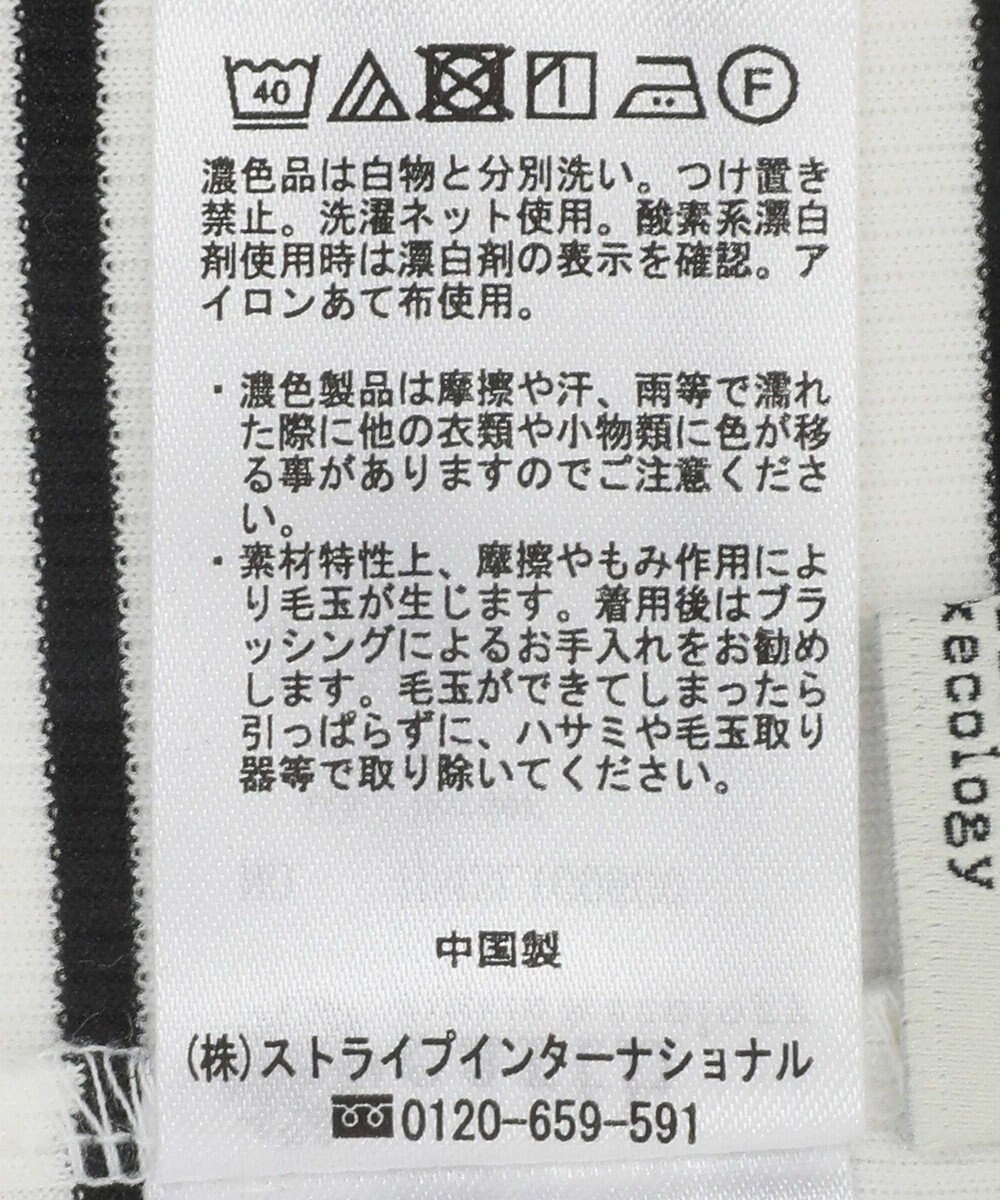 40 F
濃色品は白物と分別洗い。つけ置き
禁止。洗濯ネット使用。酸素系漂白
剤使用時は漂白剤の表示を確認。ア
イロンあて布使用。
・濃色製品は摩擦や汗、雨等で濡れ
た際に他の衣類や小物類に色が移
る事がありますのでご注意くださ
い。
・素材特性上、摩擦やもみ作用によ
り毛玉が生じます。着用後はブラ
ッシングによるお手入れをお勧め
します。毛玉ができてしまったら
引っぱらずに、ハサミや毛玉取り
器等で取り除いてください。
中国製
(株)ストライプインターナショナル
0120-659-591
ecology